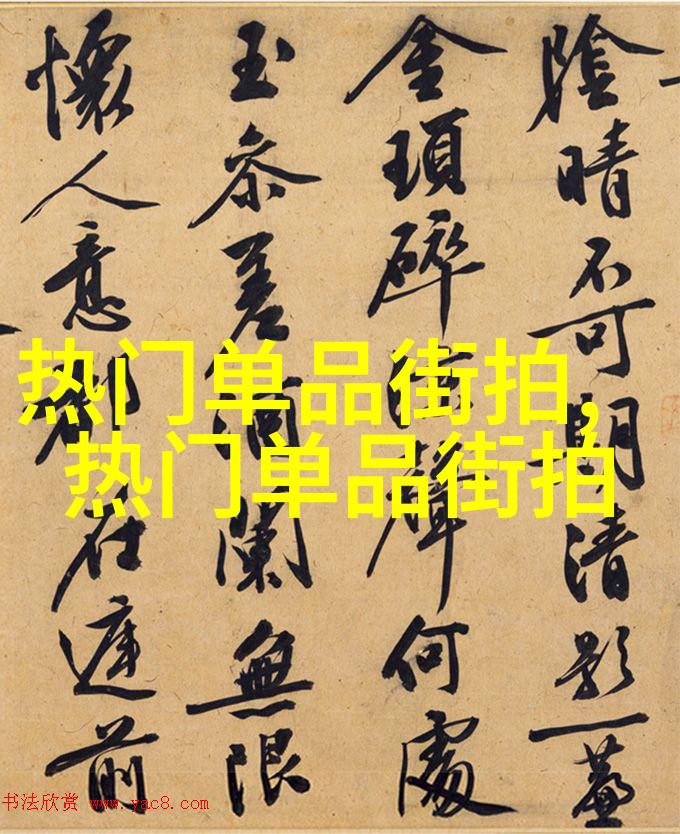 陰晴不可期清影一
金瑣碎聲何處
玉参差酒闌無限
懷人意都在庭前
热门单品街拍,
热门单品街拍
书法欣赏 www.yac8.com